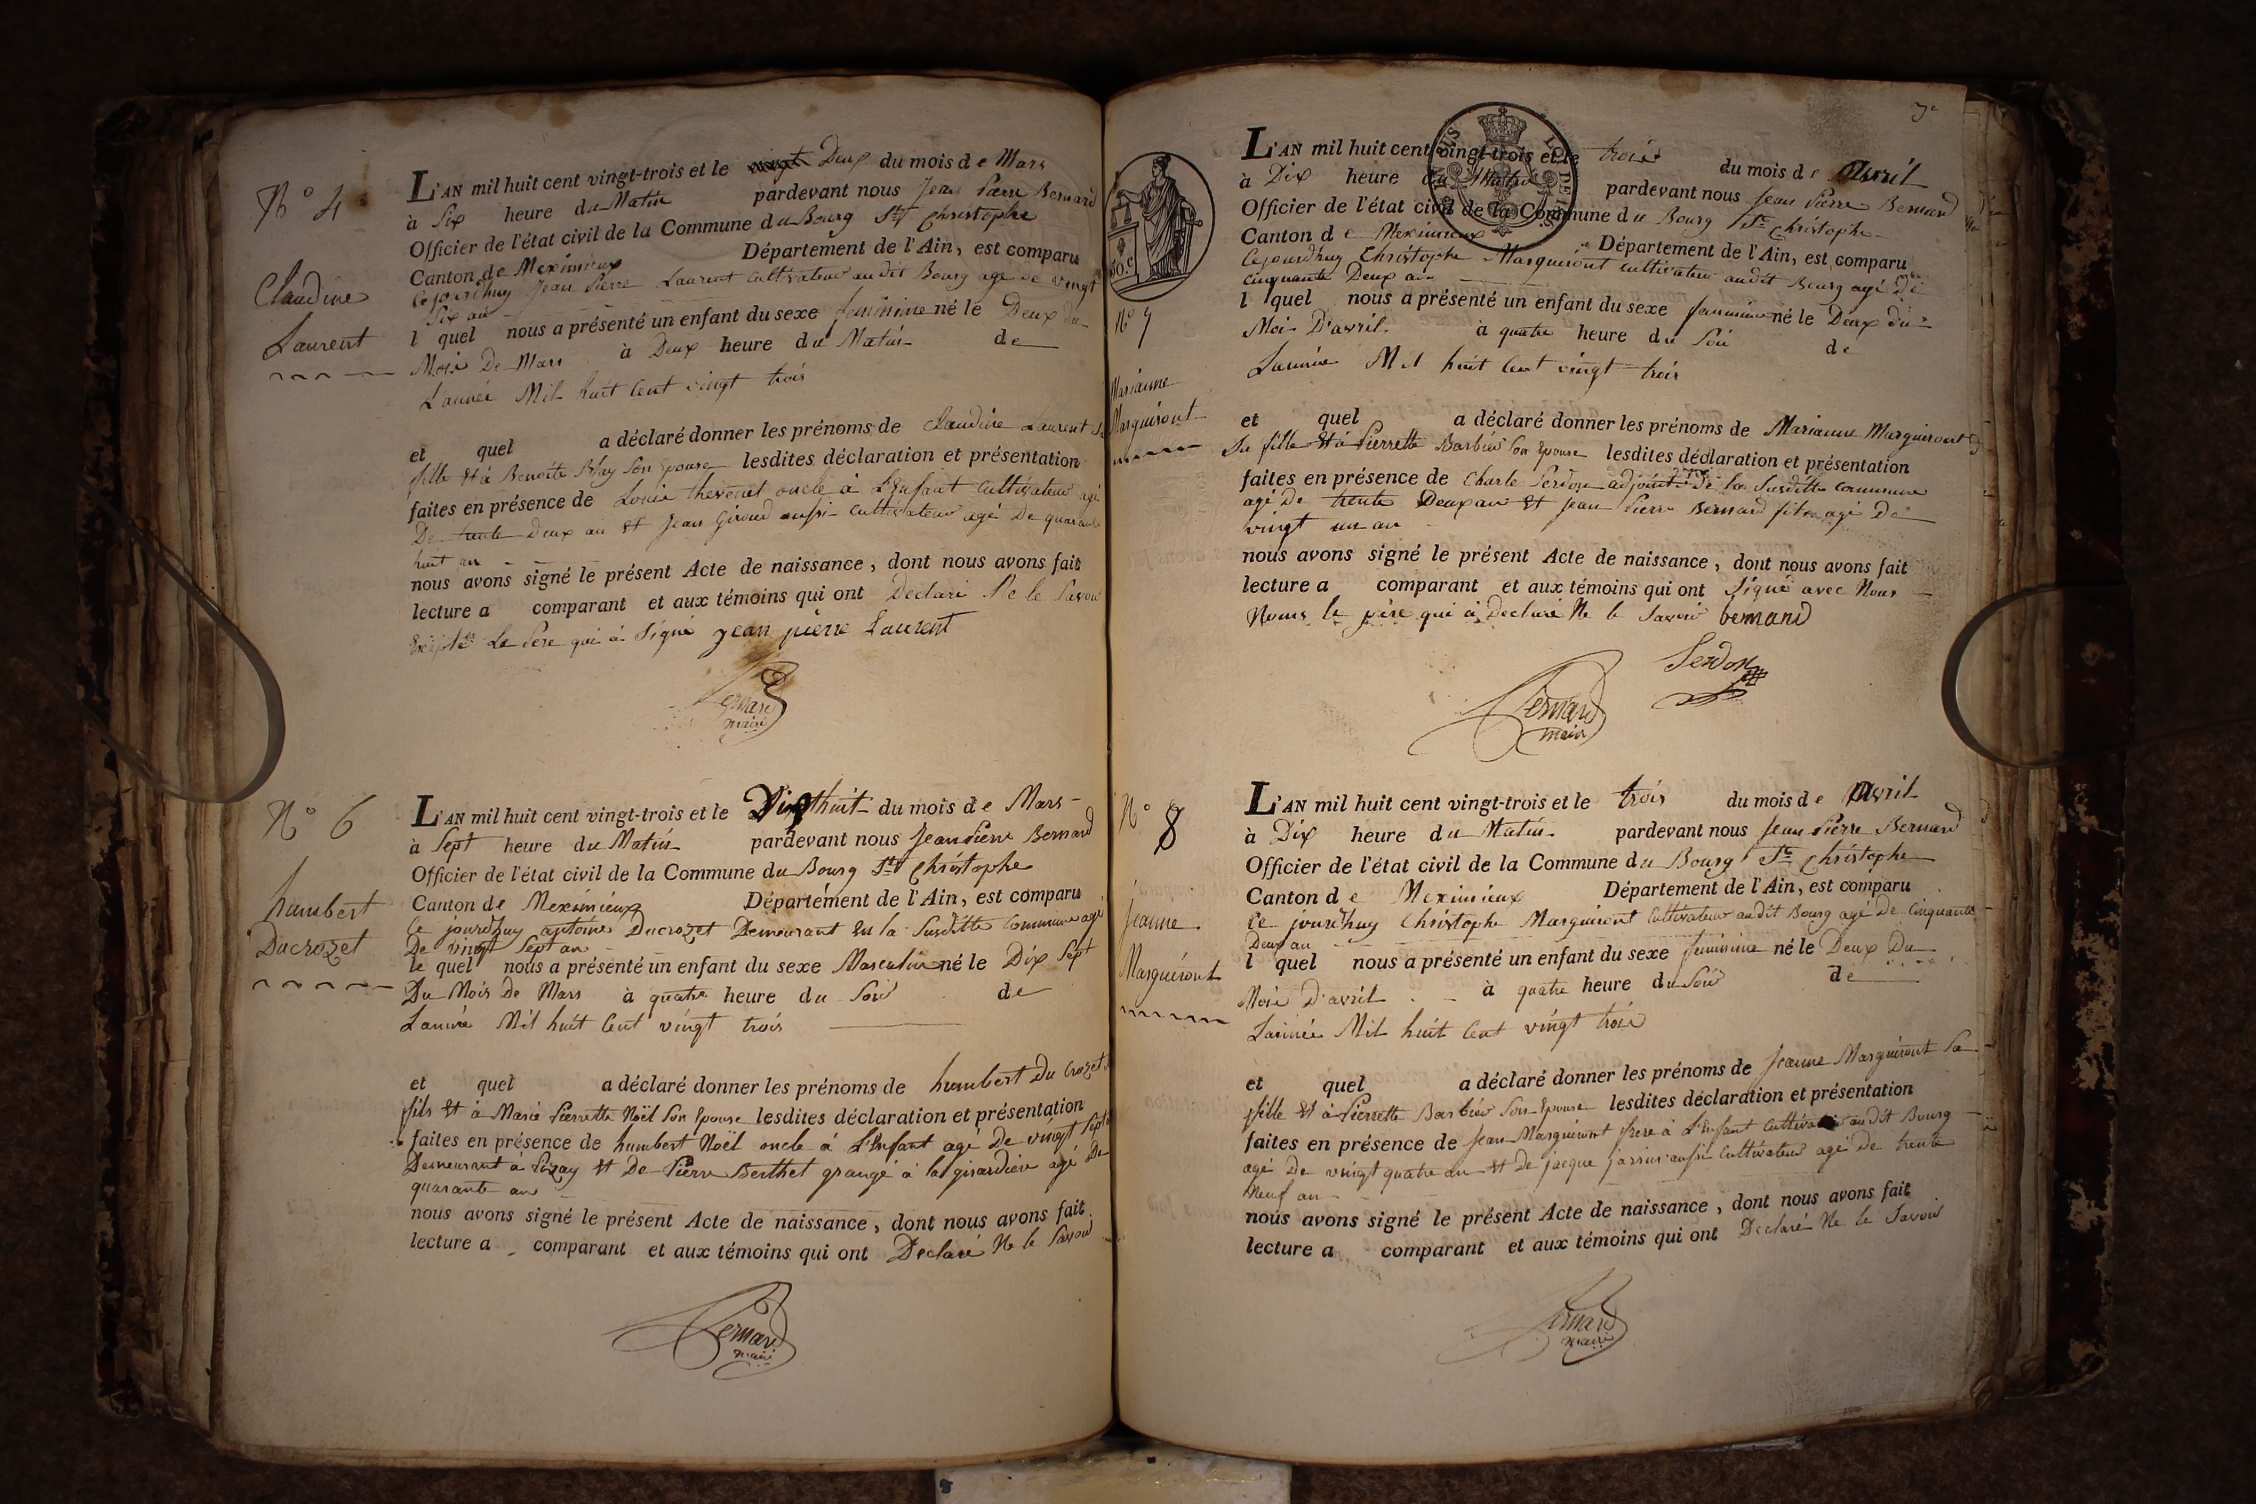 N° 4
Claudine
Laurent
L'AN mil huit cent vingt-trois et le Deux du mois de Mars
à Six heure du Matin pardevant nous Jean Pierre Bernard
Officier de l'état civil de la Commune du Bourg St Christophe
Canton de Meximieux Département de l'Ain, est comparu
Cejourdhuy Jean Pierre Laurent Cultivateur audit Bourg agé de vingt
Six an
l quel nous a présenté un enfant du sexe feminine né le Deux du
Mois De Mars à Deux heure du Matin de
L'année Mil huit Cent vingt trois
et quel a déclaré donner les prénoms de Claudine Laurent Sa
fille Et à Benoite Blay Son Epouse lesdites déclaration et présentation
faites en présence de Louis thevenet oncle à L'Enfant Cultivateur agé
De trente Deux an Et Jean Giroud aussi Cultivateur agé De quarante
huit an
nous avons signé le présent Acte de naissance, dont nous avons fait
lecture a comparant et aux témoins qui ont Declaré Ne le Savoir
Excepter Le Pere qui à Signé jean pierre Laurent
Bernard
maire
N° 6
humbert
Ducrozet
L'AN mil huit cent vingt-trois et le Dixhuit du mois de Mars
à Sept heure du Matin pardevant nous Jean Pierre Bernard
Officier de l'état civil de la Commune du Bourg St Christophe
Canton de Meximieux Département de l'Ain, est comparu
Ce jourdhuy antoine Ducrozet Demeurant En la Susditte Commune agé
De vingt Sept an
le quel nous a présenté un enfant du sexe Masculin né le Dix Sept
Du Mois De Mars à quatre heure du Soir de
L'année Mil huit Cent vingt trois
et quel a déclaré donner les prénoms de humbert Du Crozet
fils Et à Marie Pierrette Noël Son Epouse lesdites déclaration et présentation
faites en présence de humbert Noël oncle à L'Enfant agé De vingt Sept
Demeurant à Pizay Et De Pierre Berthet grangé à la girardiere agé De
quarante an
nous avons signé le présent Acte de naissance, dont nous avons fait
lecture a comparant et aux témoins qui ont Declaré Ne le Savoir
Bernard
maire
N° 7
Marianne
Marguiront
L'AN mil huit cent vingt-trois et le trois du mois de Avril
à Dix heure du Matin pardevant nous Jean Pierre Bernard
Officier de l'état civil de la Commune du Bourg St Christophe
Canton de Meximieux Département de l'Ain, est comparu
Cejourdhuy Christophe Marguiront Cultivateur audit Bourg agé De
Cinquante Deux an
l quel nous a présenté un enfant du sexe feminine né le Deux du
Mois D'avril à quatre heure du Soir de
L'année Mil huit Cent vingt trois
et quel a déclaré donner les prénoms de Marianne Marguiront
Sa fille Et à Pierrette Barbier Son Epouse lesdites déclaration et présentation
faites en présence de Charle Perdon adjoint De la Susditte Commune
agé De trente Deux an Et Jean Pierre Bernard fils agé De
vingt un an
nous avons signé le présent Acte de naissance, dont nous avons fait
lecture a comparant et aux témoins qui ont Signé avec Nous
le père qui à Declaré Ne le Savoir bernard
Perdon
Bernard
maire
N° 8
Jeanne
Marguiront
L'AN mil huit cent vingt-trois et le trois du mois de Avril
à Dix heure du Matin pardevant nous Jean Pierre Bernard
Officier de l'état civil de la Commune du Bourg St Christophe
Canton de Meximieux Département de l'Ain, est comparu
Ce jourdhuy Christophe Marguiront Cultivateur audit Bourg agé De Cinquante
Deux an
l quel nous a présenté un enfant du sexe feminine né le Deux Du
Mois D'avril à quatre heure du Soir de
L'année Mil huit Cent vingt trois
et quel a déclaré donner les prénoms de Jeanne Marguiront Sa
fille Et à Pierrette Barbier Son Epouse lesdites déclaration et présentation
faites en présence de Jean Marguiront frere à L'Enfant Cultivateur audit Bourg
agé De vingt quatre an Et De jacque jarrus aussi Cultivateur agé De trente
Neuf an
nous avons signé le présent Acte de naissance, dont nous avons fait
lecture a comparant et aux témoins qui ont Declaré Ne le Savoir
Bernard
maire